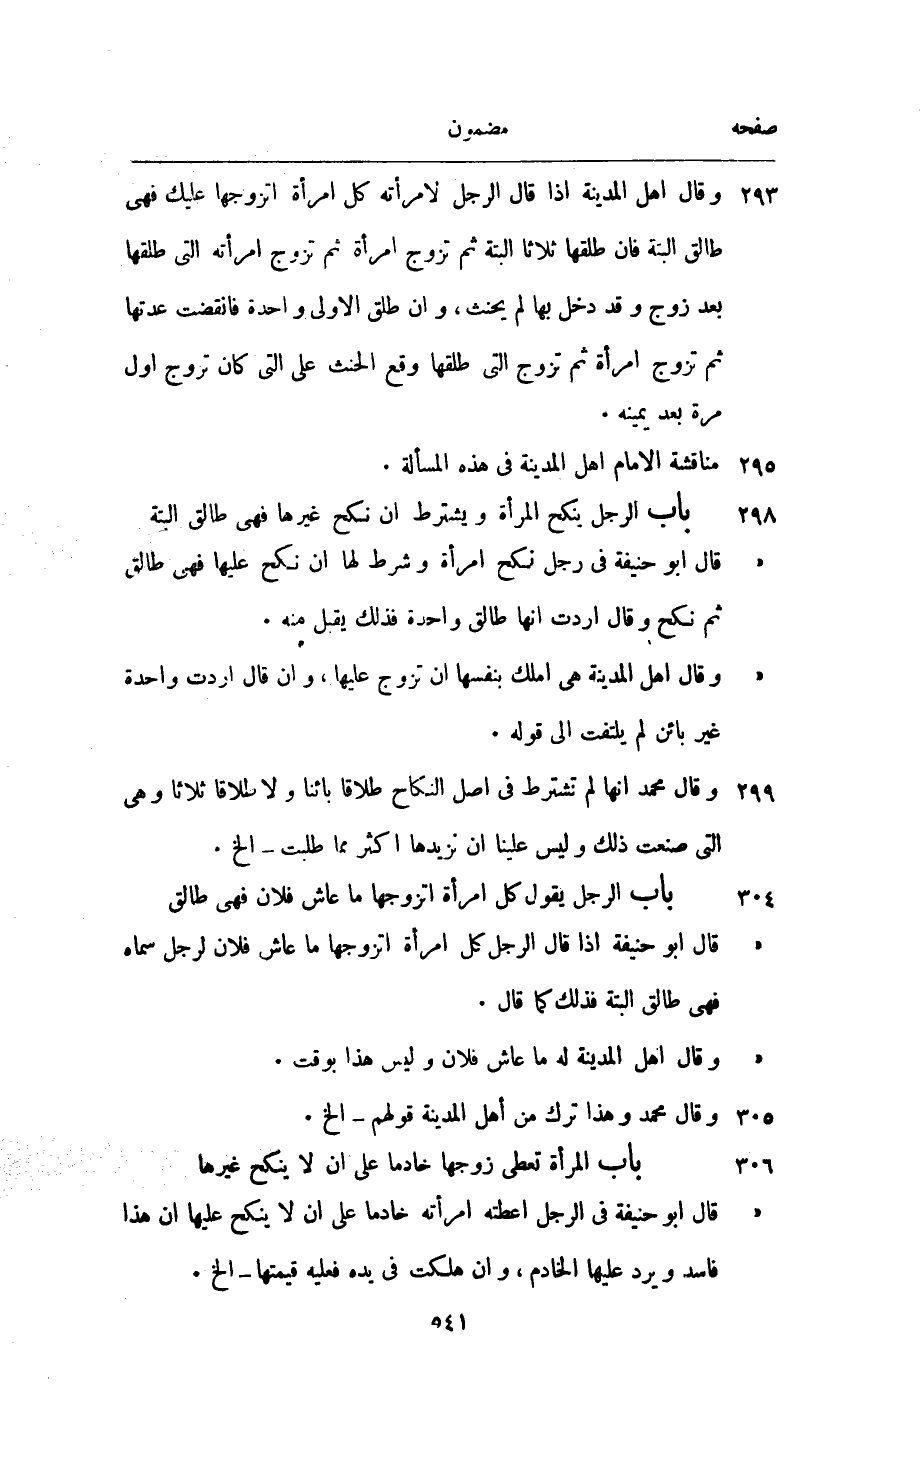 صفحه مضمون
٢٩٣ و قال اهل المدينة اذا قال الرجل لامرأته كل امرأة اتزوجها عليك فهى
طالق البتة فان طلقها ثلاثا البتة ثم تزوج امرأة ثم تزوج امرأته التى طلقها
بعد زوج و قد دخل بها لم يحنث ، و ان طلق الاولى و احدة فانقضت عدتها
ثم تزوج امرأة ثم تزوج التى طلقها وقع الحنث على التى كان تزوج اول
مرة بعد يمينه .
٢٩٥ مناقشة الامام اهل المدينة فى هذه المسألة .
٢٩٨ باب الرجل ينكح المرأة و يشترط ان نكح غيرها فهى طالق البتة
« قال ابو حنيفة فى رجل نكح امرأة و شرط لها ان نكح عليها فهى طالق
ثم نكح و قال اردت انها طالق واحدة فذلك يقبل منه .
« و قال اهل المدينة هى املك بنفسها ان تزوج عليها ، و ان قال اردت واحدة
غير بائن لم يلتفت الى قوله .
٢٩٩ و قال محمد انها لم تشترط فى اصل النكاح طلاقا بائنا و لا طلاقا ثلاثا و هى
التى صنعت ذلك و ليس علينا ان نزيدها اكثر مما طلبت ـ الخ .
٣٠٤ باب الرجل يقول كل امرأة اتزوجها ما عاش فلان فهى طالق
« قال ابو حنيفة اذا قال الرجل كل امرأة اتزوجها ما عاش فلان لرجل سماه
فهى طالق البتة فذلك كما قال .
« و قال اهل المدينة له ما عاش فلان و ليس هذا بوقت .
٣٠٥ و قال محمد و هذا ترك من أهل المدينة قولهم ـ الخ .
٣٠٦ باب المرأة تعطى زوجها خادما على ان لا ينكح غيرها
« قال ابو حنيفة فى الرجل اعطته امرأته خادما على ان لا ينكح عليها ان هذا
فاسد و يرد عليها الخادم ، و ان هلكت فى يده فعليه قيمتها ـ الخ .
٥٤١